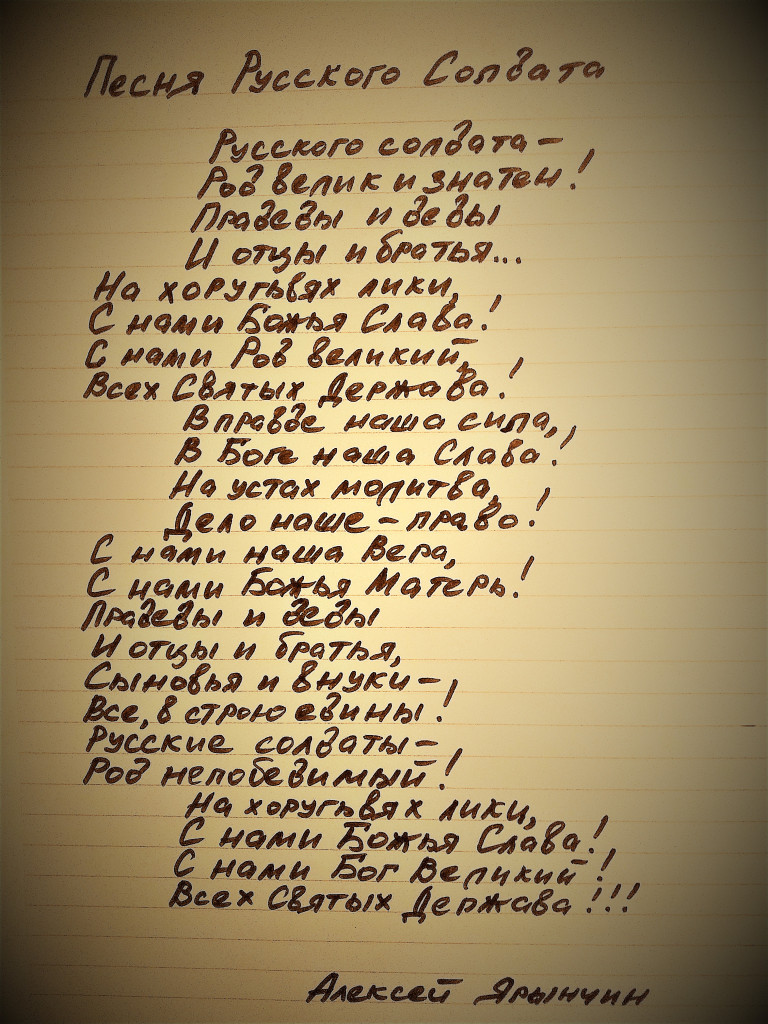 Песня Русского Солдата
Русского солдата –
Род велик и знатен!
Прадеды и деды
И отцы и братья...
На хоругьвях лики,
С нами Божья Слава!
С нами Род великий,
Всех Святых Держава!
В правде наша сила,
В Боге наша Слава!
На устах молитва,
Дело наше – право!
С нами наша Вера,
С нами Божья Матерь!
Прадеды и деды
И отцы и братья,
Сыновья и внуки –
Все, в строю едины!
Русские солдаты –
Род непобедимый!
На хоругьвях лики,
С нами Божья Слава!
С нами Бог Великий!
Всех Святых Держава!!!
Алексей Ярынчин